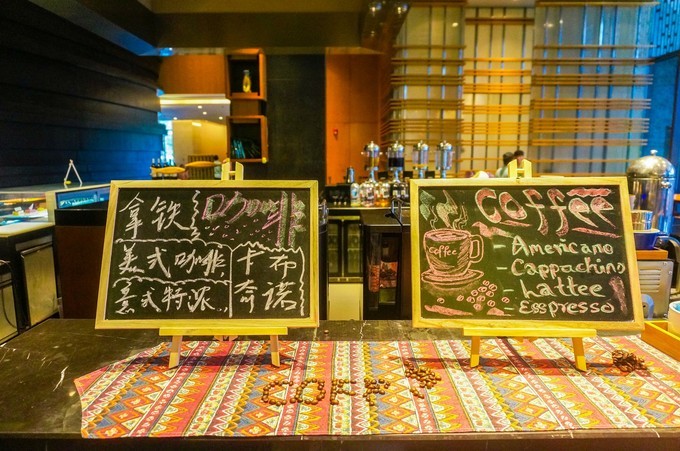 拿铁 咖啡
美式咖啡 卡布
意式特浓 奇诺
Coffee
Coffee
- Americano
- Cappachino
- Lattee
- Esspresso
COFF